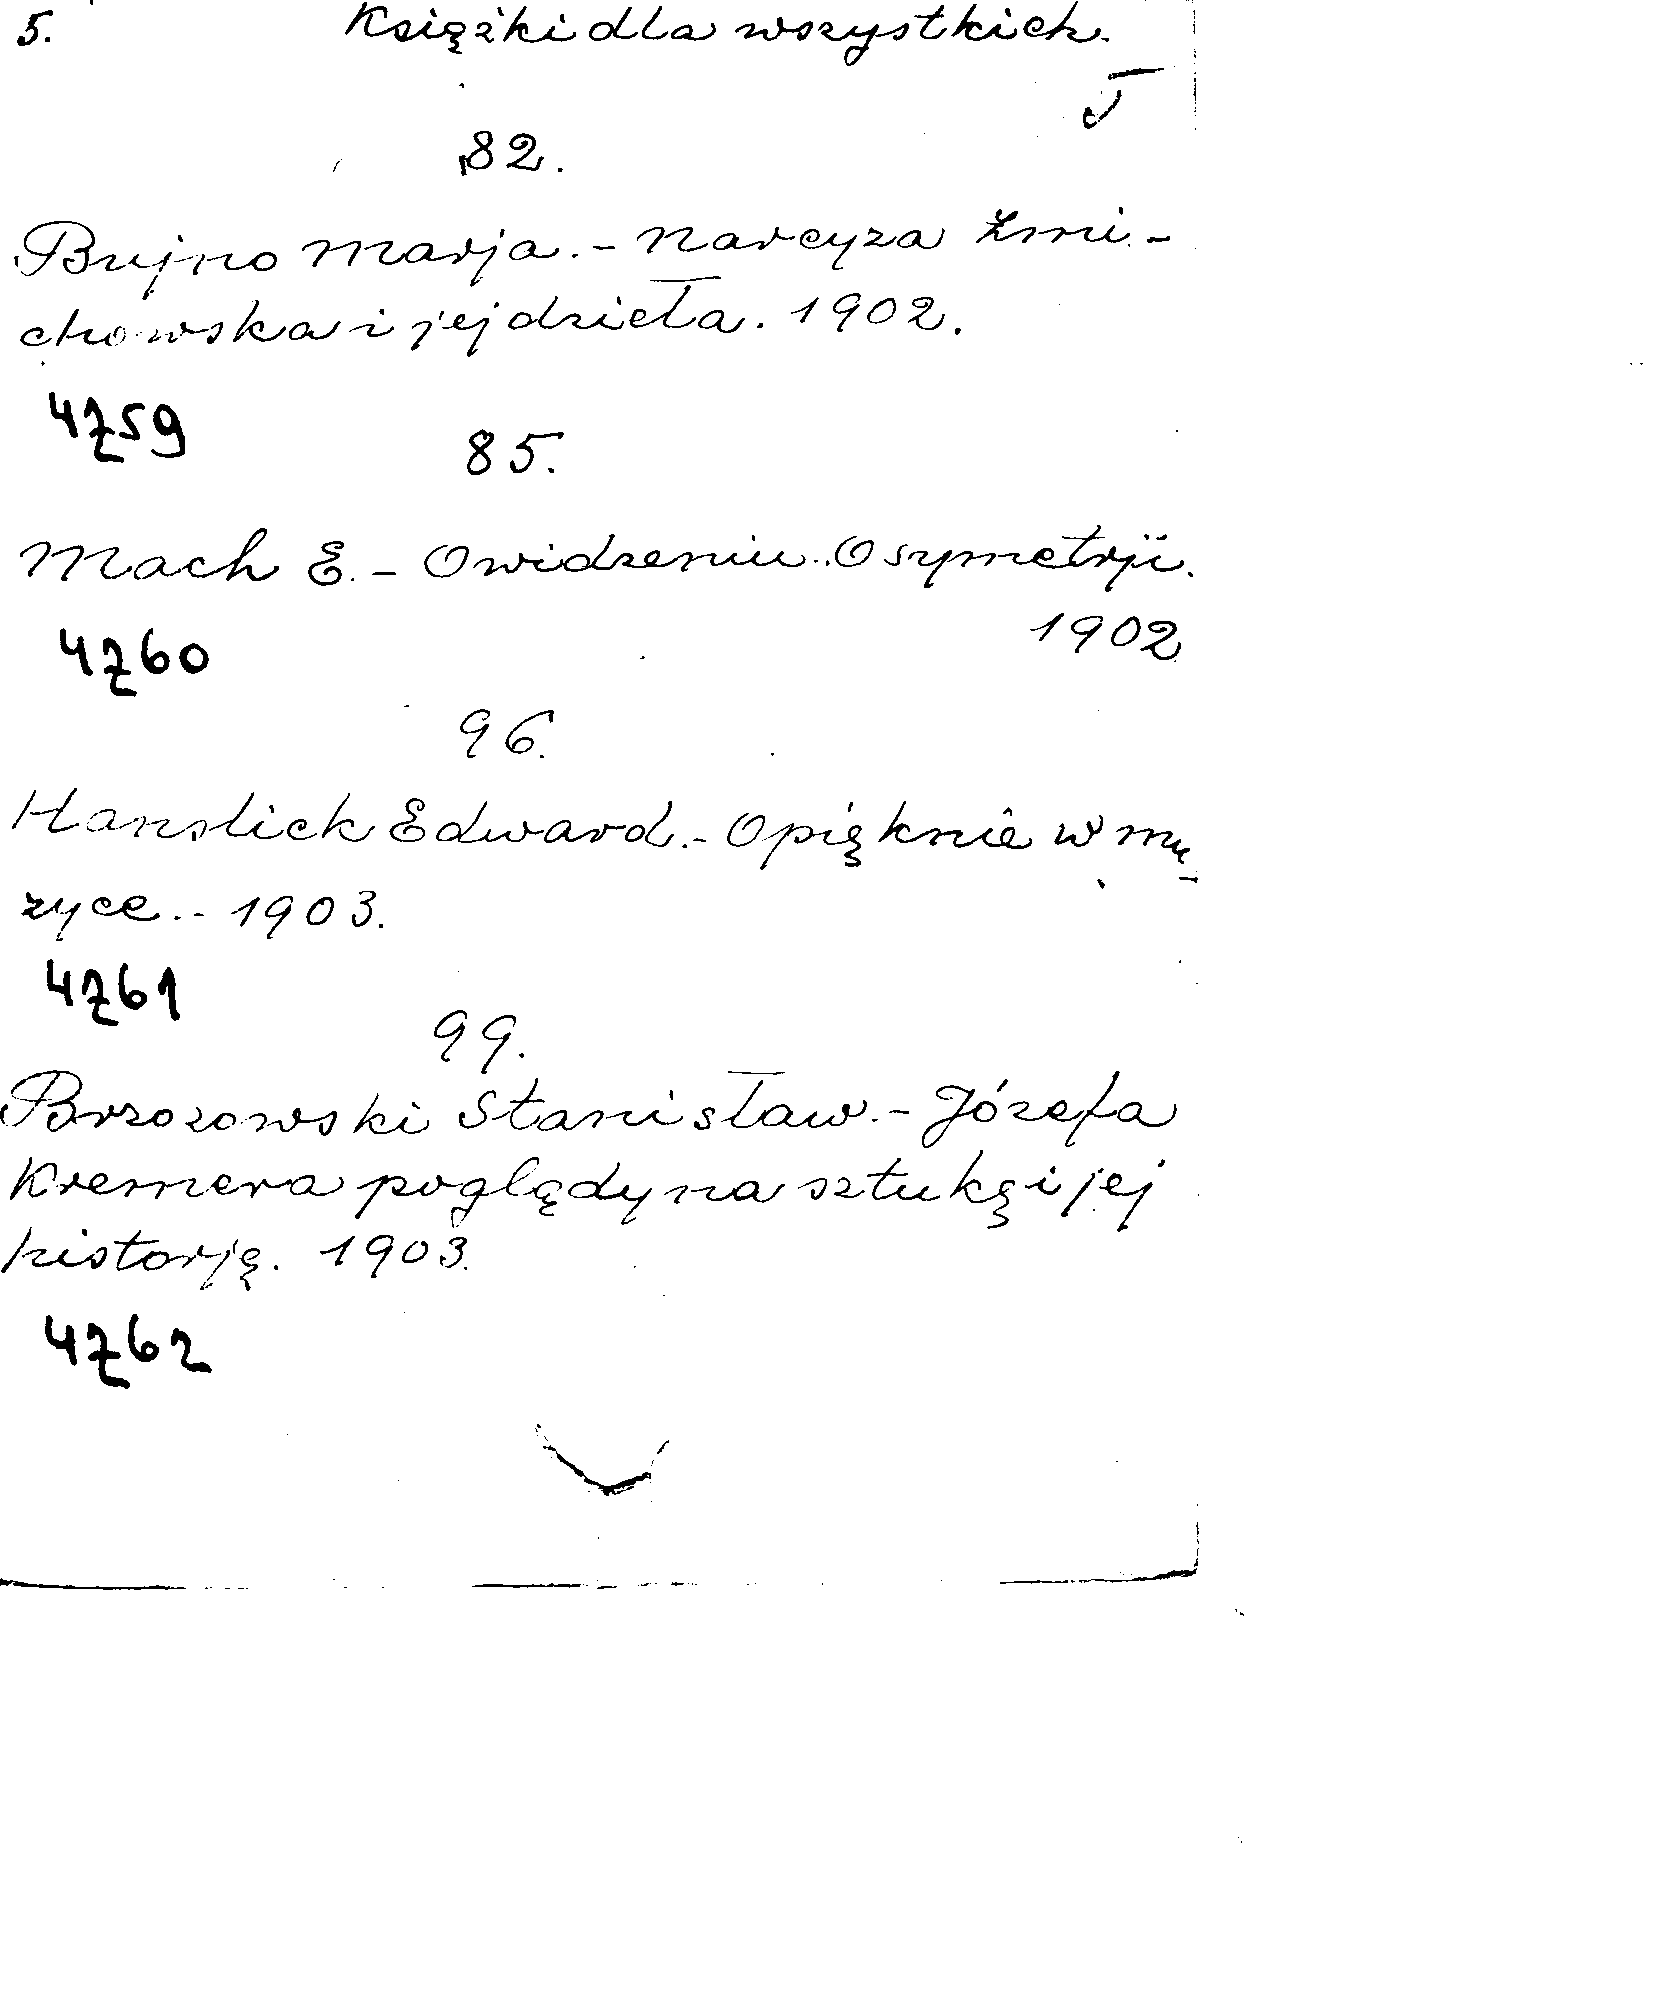 5. Książki dla wszystkich.
J
82.
Bujno Marja. - Narcyza Żmi-
chowska i jej dzieła. 1902.
4759
85.
Mach E. - O widzeniu. O symetrji.
1902
4760
96.
Hanslick Edward. - O pięknie w mu-
zyce. - 1903.
4761
99.
Brzozowski Stanisław. - Józefa
Kremera poglądy na sztukę i jej
historję. 1903.
4762